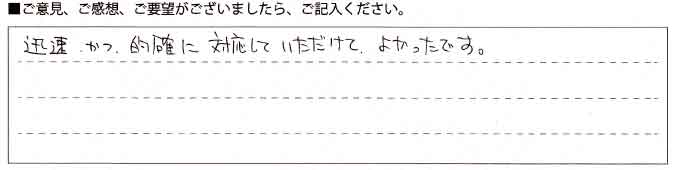 ■ご意見、ご感想、ご要望がございましたら、ご記入ください。
迅速かつ、的確に対応していただけて、よかったです。